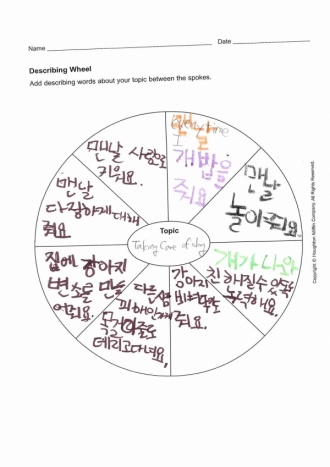 Name
Date
Describing Wheel
Add describing words about your topic between the spokes.
맨날 사랑으로
키워요.
every time
I
맨날
개밥을
줘요
맨날
놀아줘요.
맨날
다정하게 대해
줘요
Topic
Taking Care of dog
개가 나와
친해질수 있록
노력해요.
집에 강아지
변소를 만들
어줘요.
다른사람
피해안가게
목거리줄로
데리고다녀요,
강아지
줘요.
© Houghton Mifflin Company. All Rights Reserved.